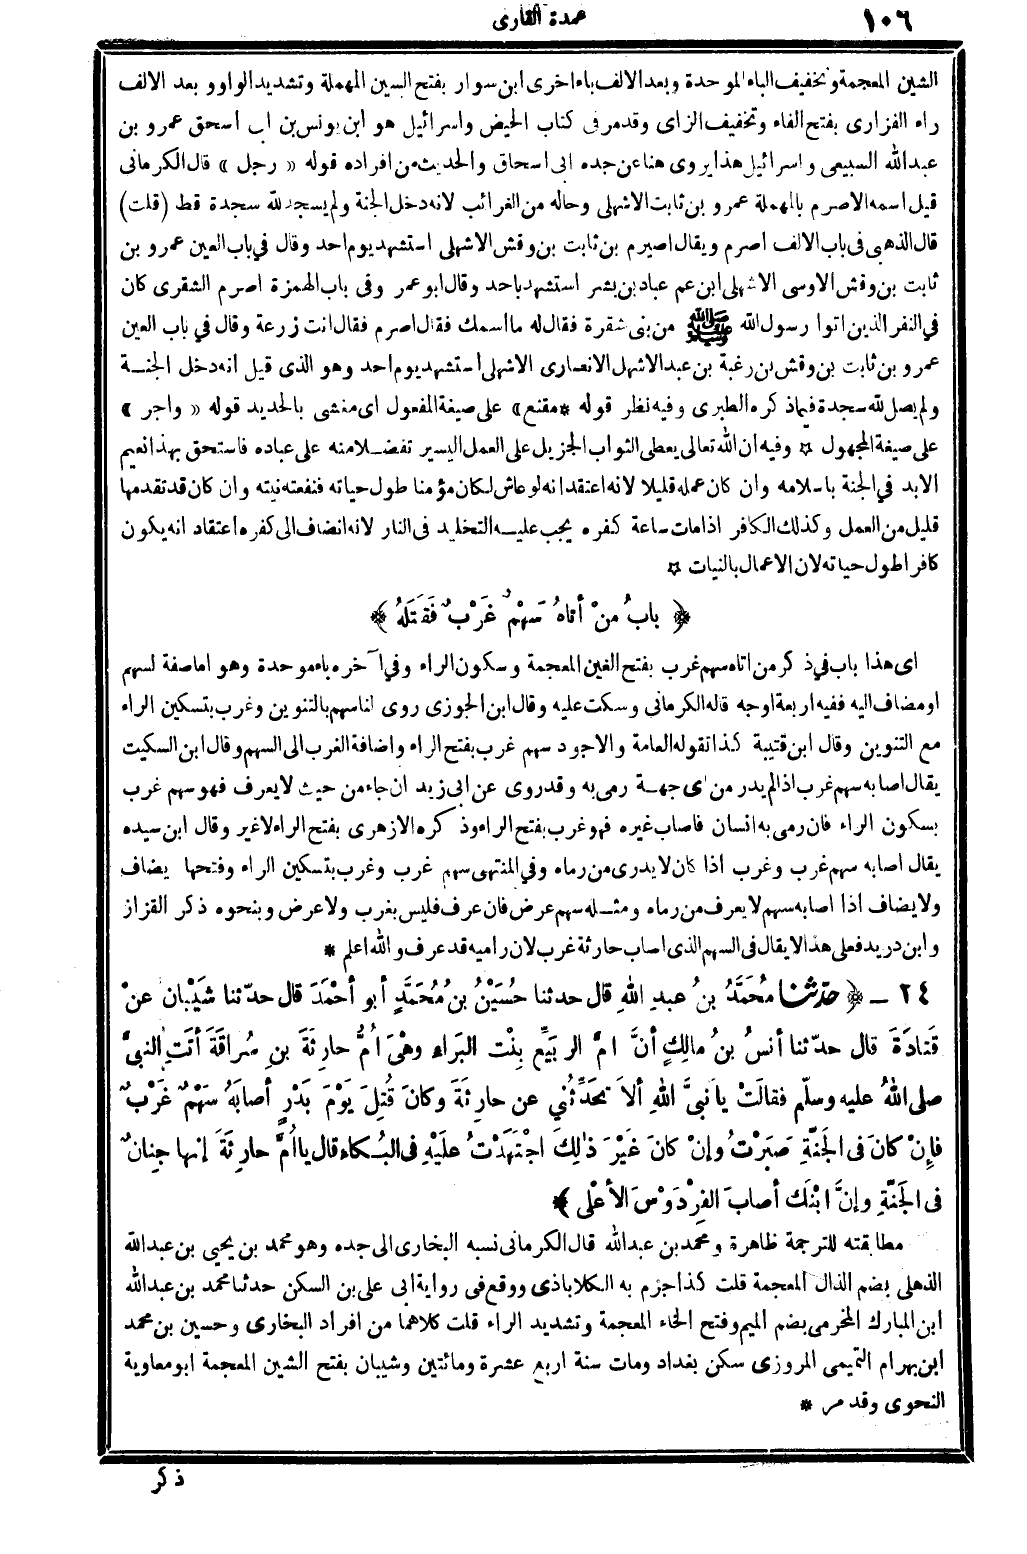 ١٠٦
عمدة القارى
الشين المعجمة وتخفيف الباء الموحدة وبعد الالف باء اخرى ابن سوار بفتح السين المهملة وتشديد الواو وبعد الالف
راء الفزارى بفتح الفاء وتخفيف الزاى وقدمر فى كتاب الحيض واسرائيل هو ابن يونس بن ابى اسحق عمرو بن
عبدالله السبيعى واسرائيل هذا يروى هنا عن جده ابى اسحاق والحديث من افراده قوله « رجل » قال الكرمانى
قيل اسمه الاصرم بالمهملة عمرو بن ثابت الاشهلى وحاله من الغرائب لانه دخل الجنة ولم يسجد لله سجدة قط (قلت)
قال الذهبى فى باب الالف اصرم ويقال اصيرم بن ثابت بن وقش الاشهلى استشهد يوم احد وقال في باب العين عمرو بن
ثابت بن وقش الاوسى الاشهلى ابن عم عباد بن بشر استشهد باحد وقال ابو عمر وفى باب الهمزة اصرم الشقرى كان
في النفر الذين اتوا رسول الله ﷺ من بنى شقرة فقال له ما اسمك فقال اصرم فقال انت زرعة وقال في باب العين
عمرو بن ثابت بن وقش بن رغبة بن عبد الاشهل الانصارى الاشهلى استشهد يوم احد وهو الذى قيل انه دخل الجنـة
ولم يصل لله سجدة فيما ذكره الطبرى وفيه نظر قوله «مقنع» على صيغة المفعول اى مغشى بالحديد قوله « واجر »
على صيغة المجهول ✡ وفيه ان الله تعالى يعطى الثواب الجزيل على العمل اليسير تفضـلا منه على عباده فاستحق بهذا نعيم
الابد في الجنة باسلامه وان كان عمله قليلا لانه اعتقد انه لو عاش لكان مؤمنا طول حياته فنفعته نيته وان كان قد تقدمها
قليل من العمل وكذلك الكافر اذا مات ساعة كفره يجب عليـه التخليد فى النار لانه انضاف الى كفره اعتقاد انه يكون
كافرا طول حياته لان الاعمال بالنيات ✡
﴿ بابُ منْ أتاهُ سَهْمٌ غَرْبٌ فَقَتَلَهُ ﴾
اى هذا باب في ذكر من اتاه سهم غرب بفتح الغين المعجمة وسكون الراء وفي آخره باء موحدة وهو اما صفة لسهم
او مضاف اليه ففيه اربعة اوجه قاله الكرمانى وسكت عليه وقال ابن الجوزى روى لنا سهم بالتنوين وغرب بتسكين الراء
مع التنوين وقال ابن قتيبة كذا تقوله العامة والاجود سهم غرب بفتح الراء واضافة الغرب الى السهم وقال ابن السكيت
يقال اصابه سهم غرب اذا لم يدر من اى جهـة رمى به وقد روى عن ابى زيد ان جاء من حيث لا يعرف فهو سهم غرب
بسكون الراء فان رمى به انسان فاصاب غيره فهو غرب بفتح الراء وذكره الازهرى بفتح الراء لا غير وقال ابن سيده
يقال اصابه سهم غرب وغرب اذا كان لا يدرى من رماه وفي المنتهى سهم غرب وغرب بتسكين الراء وفتحها يضاف
ولا يضاف اذا اصابه سهم لا يعرف من رماه ومثـله سهم عرض فان عرف فليس بغرب ولا عرض وبنحوه ذكر القزاز
وابن دريد فعلى هذا لا يقال فى السهم الذى اصاب حارثة غرب لان راميه قد عرف والله اعلم *
٢٤ ـ ﴿ حدّثنا مُحَمَّدُ بنُ عبدِ اللهِ قال حدثنا حُسَيْنُ بنُ مُحَمَّدٍ أبو أحْمَدَ قال حدّثنا شَيْبانُ عنْ
قَتادَةَ قال حدّثنا أنسُ بنُ مالِكٍ أنَّ امَّ الرُبَيِّعِ بِنْتَ البَراءِ وهْىَ أُمُّ حارِثَةَ بنِ سُراقَةَ أتَتِ النبىَّ
صلى اللهُ عليه وسلّم فقالَتْ يا نبىَّ اللهِ ألاَ تُحَدِّثُنِي عن حارِثَةَ وكانَ قُتِلَ يَوْمَ بَدْرٍ أصابَهُ سَهْمٌ غَرْبٌ
فإِنْ كانَ فى الجَنَّةِ صَبَرْتُ وإنْ كانَ غَيْرَ ذٰلِكَ اجْتَهَدْتُ علَيْهِ فى البُـكاءِ قال يا اُمَّ حارِثَةَ إنها جِنانٌ
فى الجَنَّةِ وإنَّ ابْنَكِ أصابَ الفِرْدَوْسَ الأعْلى ﴾
مطابقته للترجمة ظاهرة ومحمد بن عبدالله قال الكرمانى نسبه البخارى الى جده وهو محمد بن يحيى بن عبدالله
الذهلى بضم الذال المعجمة قلت كذا جزم به الكلاباذى ووقع فى رواية ابى على بن السكن حدثنا محمد بن عبدالله
ابن المبارك المخرمى بضم الميم وفتح الخاء المعجمة وتشديد الراء قلت كلاهما من افراد البخارى وحسين بن محمد
ابن بهرام التميمى المروزى سكن بغداد ومات سنة اربع عشرة ومائتين وشيبان بفتح الشين المعجمة ابو معاوية
النحوى وقد مر *
ذكر